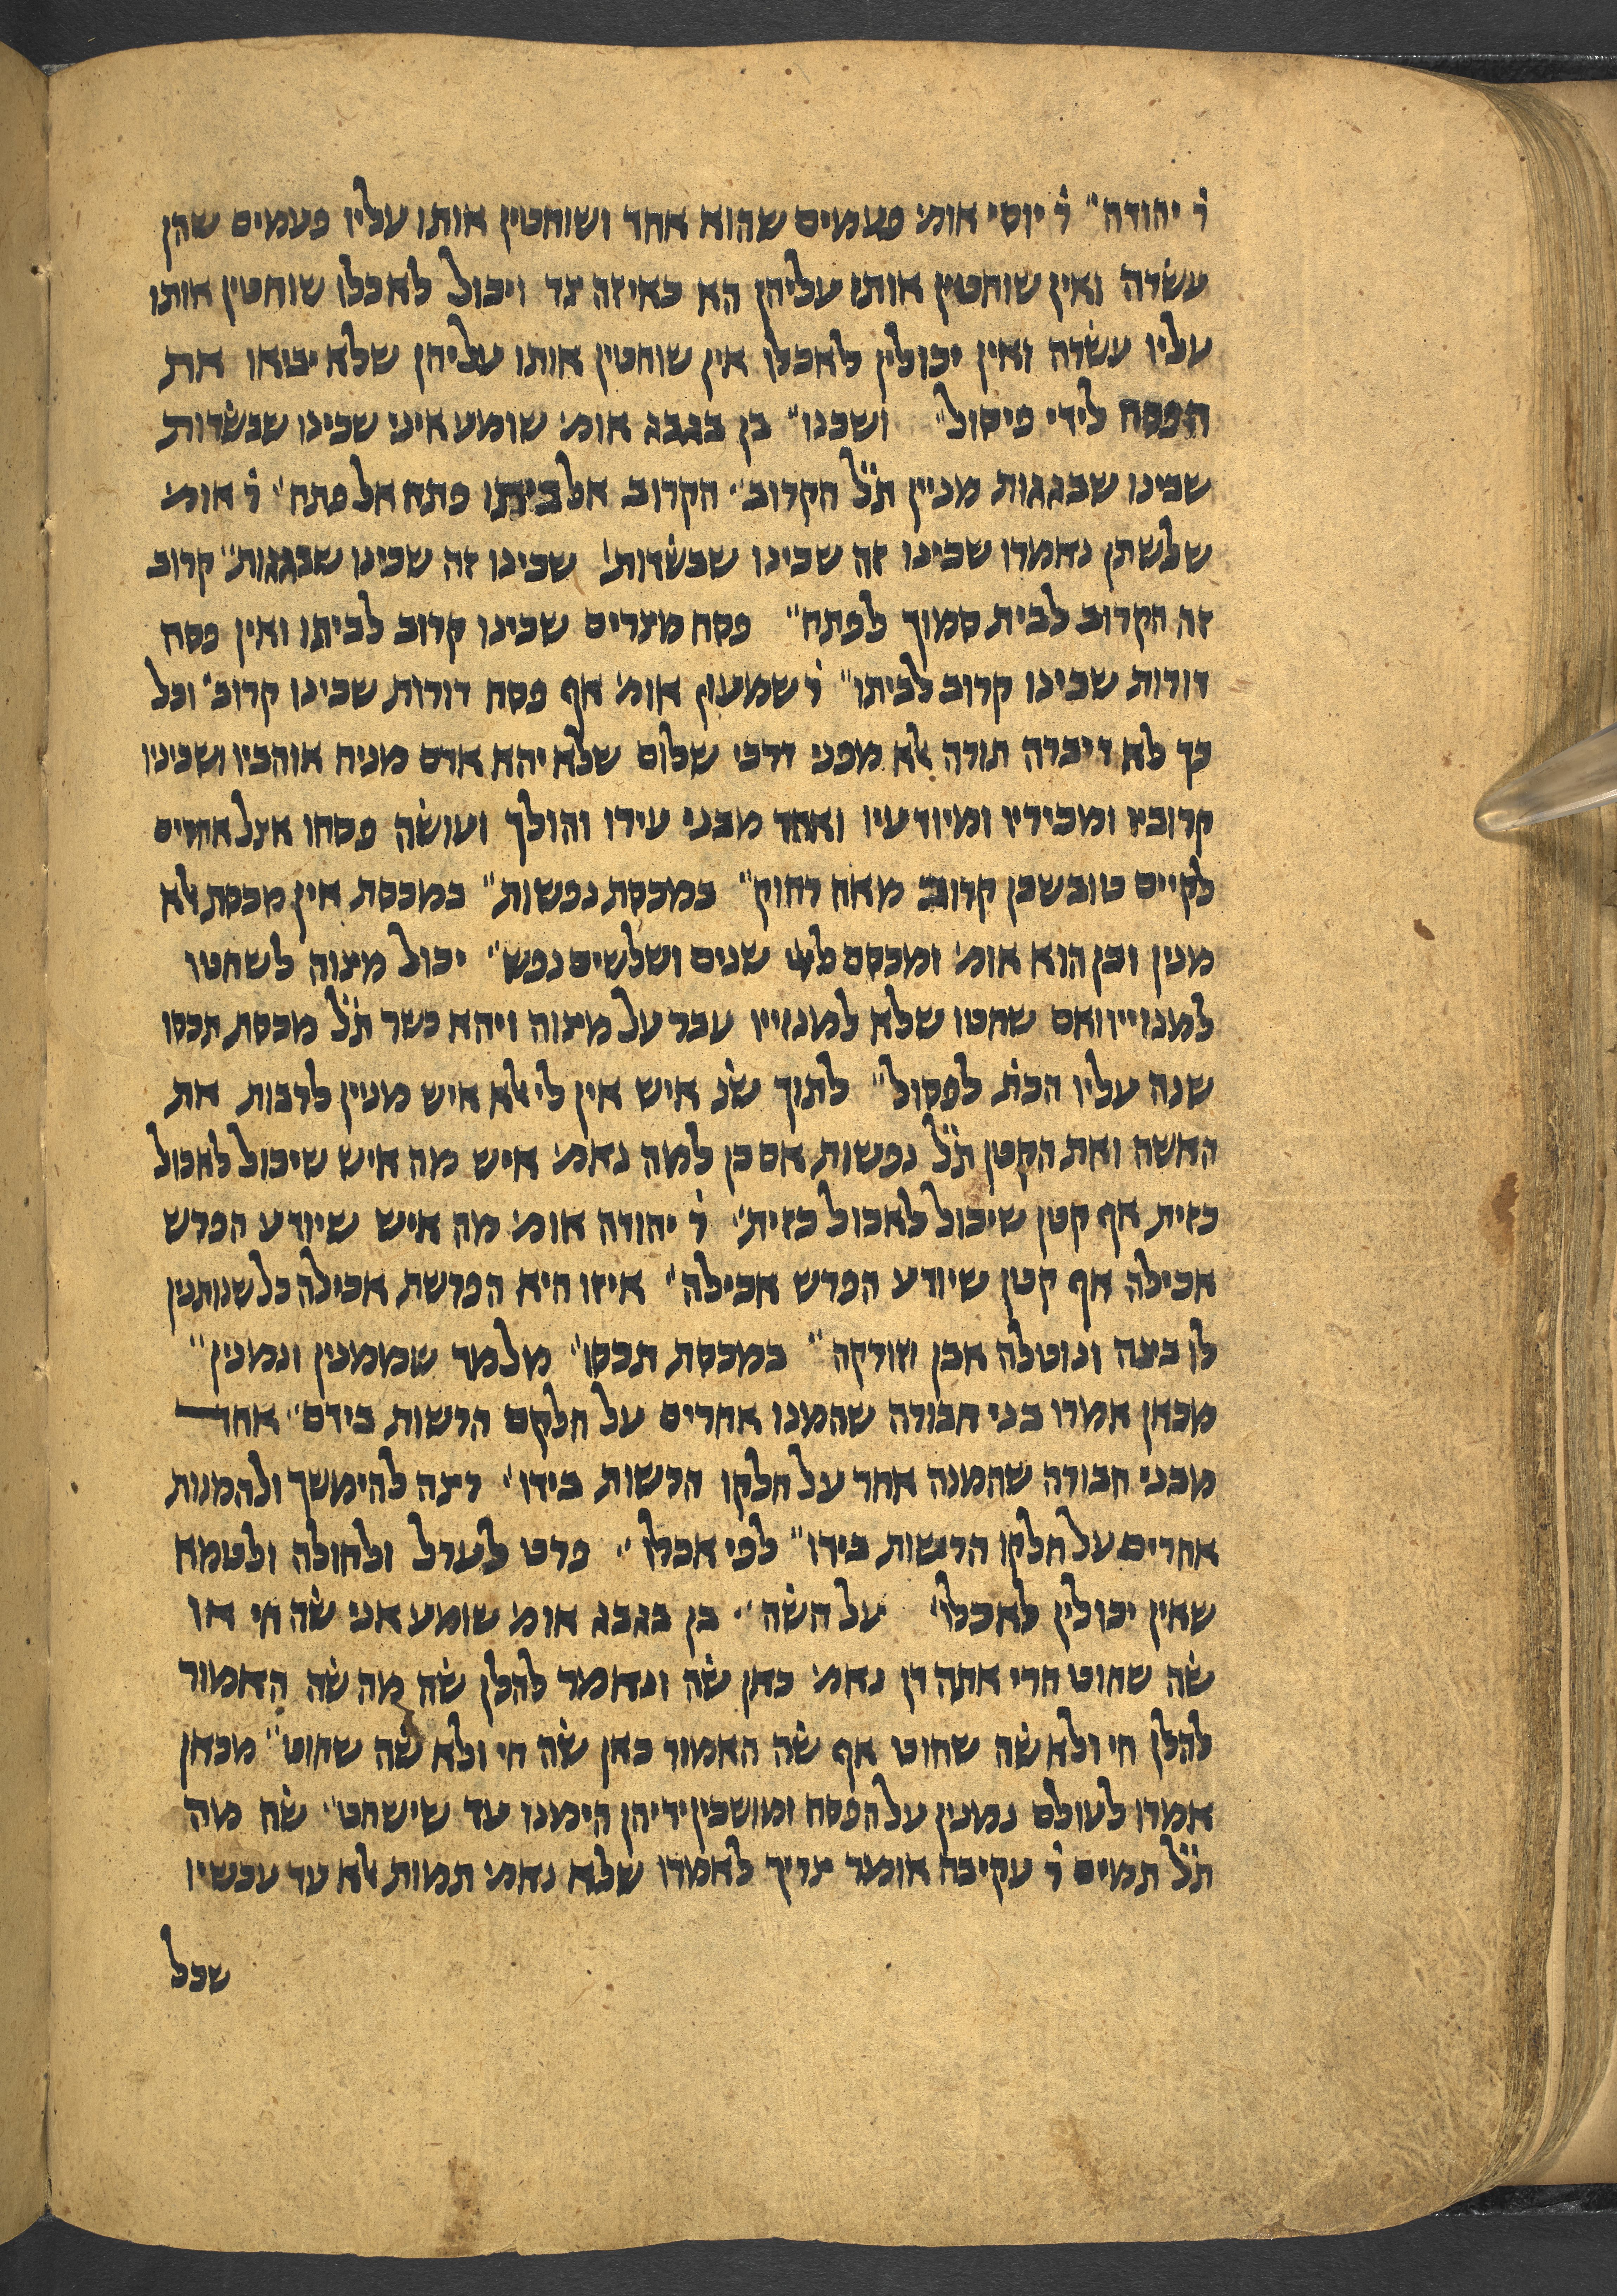 ר׳ יהודה״ ר׳ יוסי אומ׳ פעמים שהוא אחד ושוחטין אותו עליו פעמים שהן
עשרה ואין שוחטין אותו עליהן הא כאיזה צד ויכול לאכלו שוחטין אותו
עליו עשרה ואין יכולין לאכלו אין שוחטין אותו עליהן שלא יביאו את
הפסח לידי פיסול״ ושכנו״ בן בגבג אומ׳ שומע איני שכינו שבשדות
שכינו שבגגות מניין ת״ל הקרוב״ הקרוב אל ביתו פתח אל פתח״ ר׳ אומ׳
שלשתן נאמרו שכינו זה שכינו שבשדות׳ שכינו זה שכינו שבגגות״ קרוב
זה הקרוב לבית סמוך לפתח״ פסח מצרים שכינו קרוב לביתו ואין פסח
דורות שכינו קרוב לביתו״ ר׳ שמעון אומ׳ אף פסח דורות שכינו קרוב״ וכל
כך לא דיברה תורה אלא מפני דרכי שלום שלא יהא אדם מניח אוהביו ושכיניו
קרוביו ומכיריו ומיודעיו ואחד מבני עירו והולך ועושה פסחו אצל אחרים
לקיים טוב שכן קרוב מאח רחוק״ במכסת נפשות״ במכסת אין מכסת אלא
מנין וכן הוא אומ׳ ומכסם ליי שנים ושלשים נפש״ יכול מצוה לשחטו
למנוייו ואם שחטו שלא למנוייו עבר על מצוה ויהא כשר ת״ל מכסת תכסו
שנה עליו הכת׳ לפסול״ לתוך שנ׳ איש אין לי אלא איש מניין לרבות את
האשה ואת הקטן ת״ל נפשות אם כן למה נאמ׳ איש מה איש שיכול לאכול
כזית אף קטן שיכול לאכול כזית״ ר׳ יהודה אומ׳ מה איש שיודע הפרש
אכילה אף קטן שיודע הפרש אכילה״ איזו היא הפרשת אכילה כל שנותנין
לו ביצה ונוטלה אבן וזורקה״ במכסת תכסו״ מלמד שממנין ונמנין״
מכאן אמרו בני חבורה שהמנו אחרים על חלקם הרשות בידם״ אחד
מבני חבורה שהמנה אחר על חלקו הרשות בידו״ רצה להימשך ולהמנות
אחרים על חלקו הרשות בידו״ לפי אכלו״ פרט לערל ולחולה ולטמא
שאין יכולין לאכלו׳ על השה״ בן בגבג אומ׳ שומע אני שה חי או
שה שחוט הרי אתה דן נאמ׳ כאן שה ונאמר להלן שה מה שה האמור
להלן חי ולא שה שחוט אף שה האמור כאן שה חי ולא שה שחוט״ מכאן
אמרו לעולם נמנין על הפסח ומושכין ידיהן הימנו עד שישחט״ שה מה
ת״ל תמים ר׳ עקיבה אומר צריך לאמרו שלא נאמ׳ תמות אלא עד עכשיו
שכל